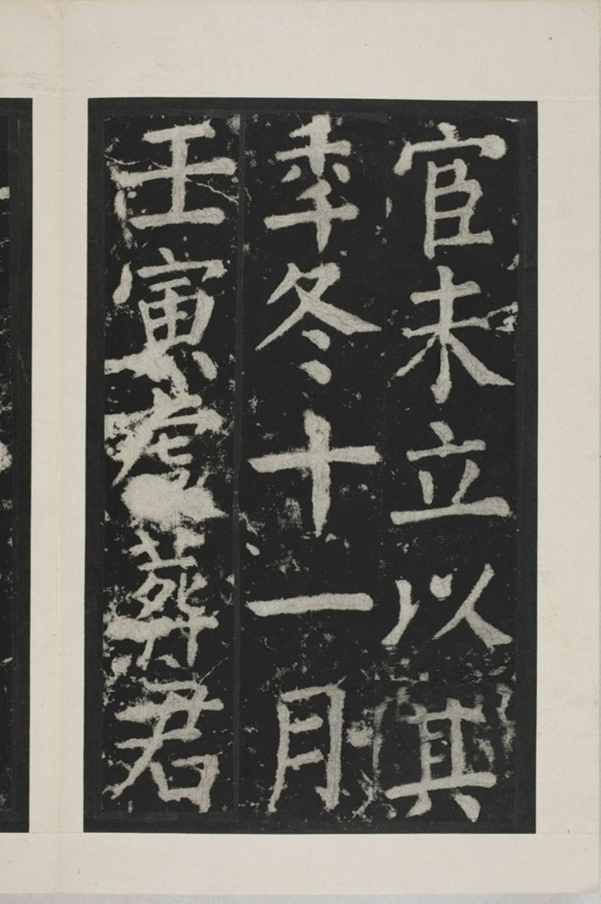 官未立以其
秊冬十一月
壬寅葬君